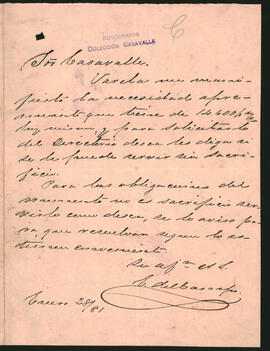 AUTÓGRAFOS
COLECCIÓN CASAVALLE
Sor Casavalle.
Varela me mani-
fiestó la necesidad apre-
miante que tiene de 14.400
hoy mismo, y para solicitarlo
del Directorio desea les diga si
se le puede servir sin sacri-
ficio.
Para las obligaciones del
momento no es sacrificio ser-
virlo como desea, se lo aviso
para que resuelvan segun lo es-
timen conveniente.
Enero 28/81